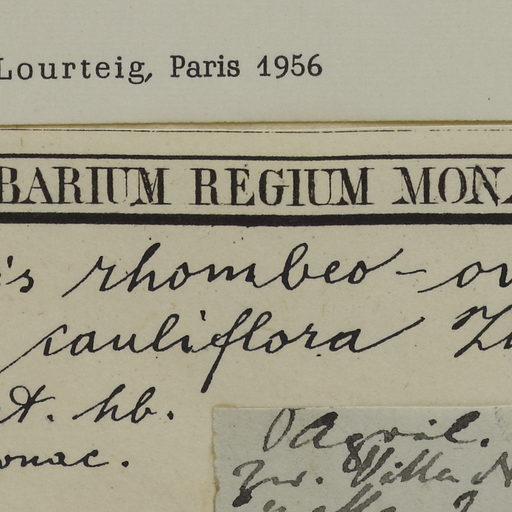 Lourteig, Paris 1956
BARIUM REGIUM MONA
is rhombeo-ov
cauliflora Zu
t. hb.
onac.
April.
zw. Villa N